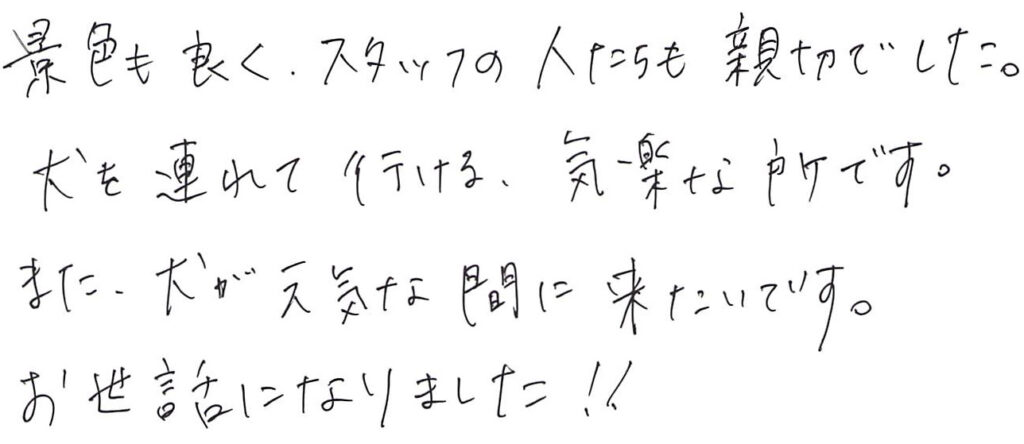 景色も良く、スタッフの人たちも親切でした。
犬を連れて行ける、気楽な所です。
また、犬が元気な間に来たいです。
お世話になりました!!